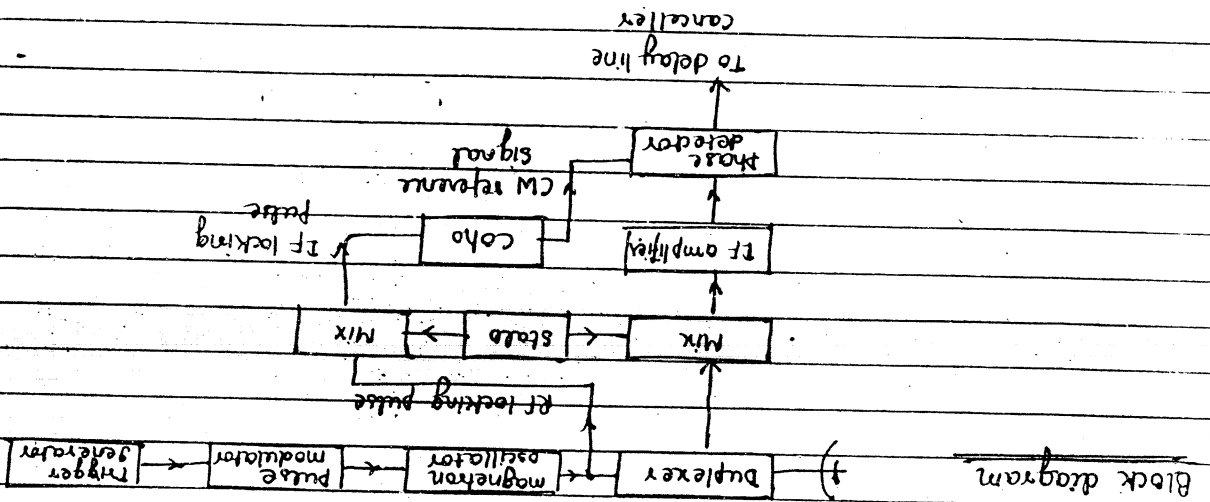 Block diagram
Duplexer
magnetron
oscillator
Pulse
modulator
Trigger
generator
RF locking pulse
Mix
Stalo
Mix
IF amplifier
Coho
IF locking
pulse
CW reference
signal
Phase
detector
To delay line
canceller